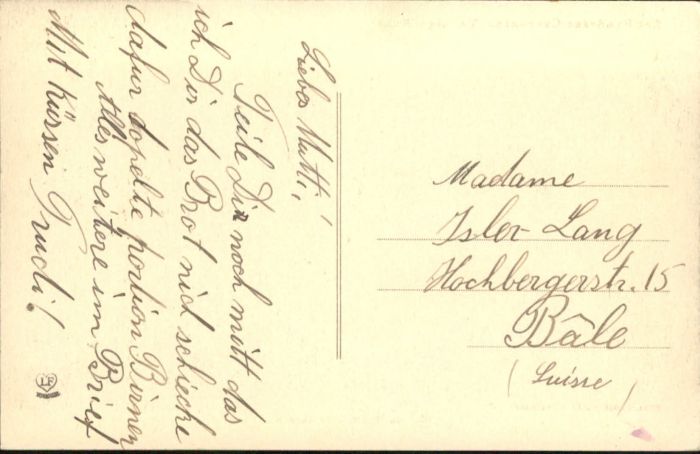 Liebes Mutti,
Teile Dir noch mitt das
ich Dir das Brot nid schiecke
dafur dopelte portion Birnen
Alles weitere im Brief
Mit Küssen Trudi!
Madame
Isler-Lang
Hochbergerstr. 15
Bâle
(Suisse)